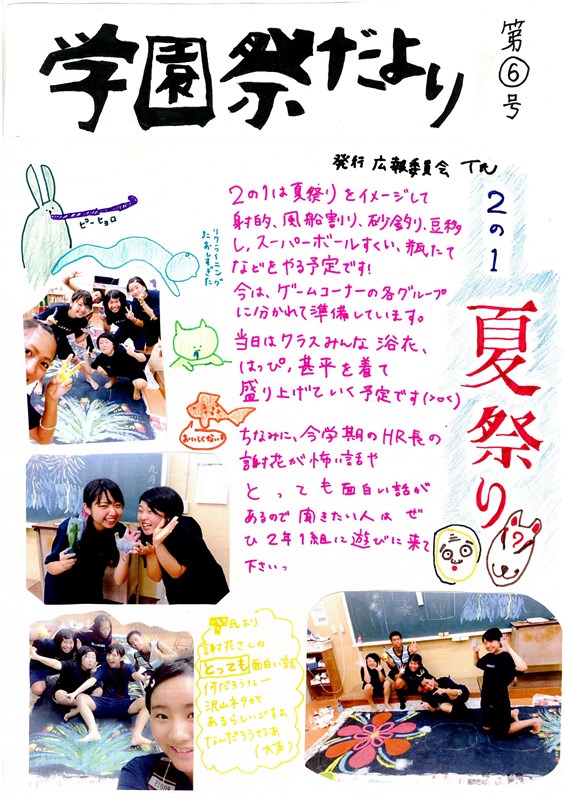 学園祭だより
第⑥号
発行 広報委員会
2の1
夏祭り
ピーヒョロ
リクライニング
たおしすぎた
2の1は夏祭りをイメージして
射的、風船割り、砂釣り、豆移
し、スーパーボールすくい、瓶たて
などをやる予定です!
今は、ゲームコーナーの各グループ
に分かれて準備しています。
当日はクラスみんな浴衣、
はっぴ、甚平を着て
盛り上げていく予定です(>o<)
おいしくないよ
ちなみに、今学期のHR長の
謝花が怖い話や
とっても面白い話が
あるので聞きたい人はぜ
ひ2年1組に遊びに来て
下さいっ
氏より
謝花さんの
とっても面白い話
何だろうなー
沢山ネタが
あるらしいですよ
なんだろうなあ
(大声)